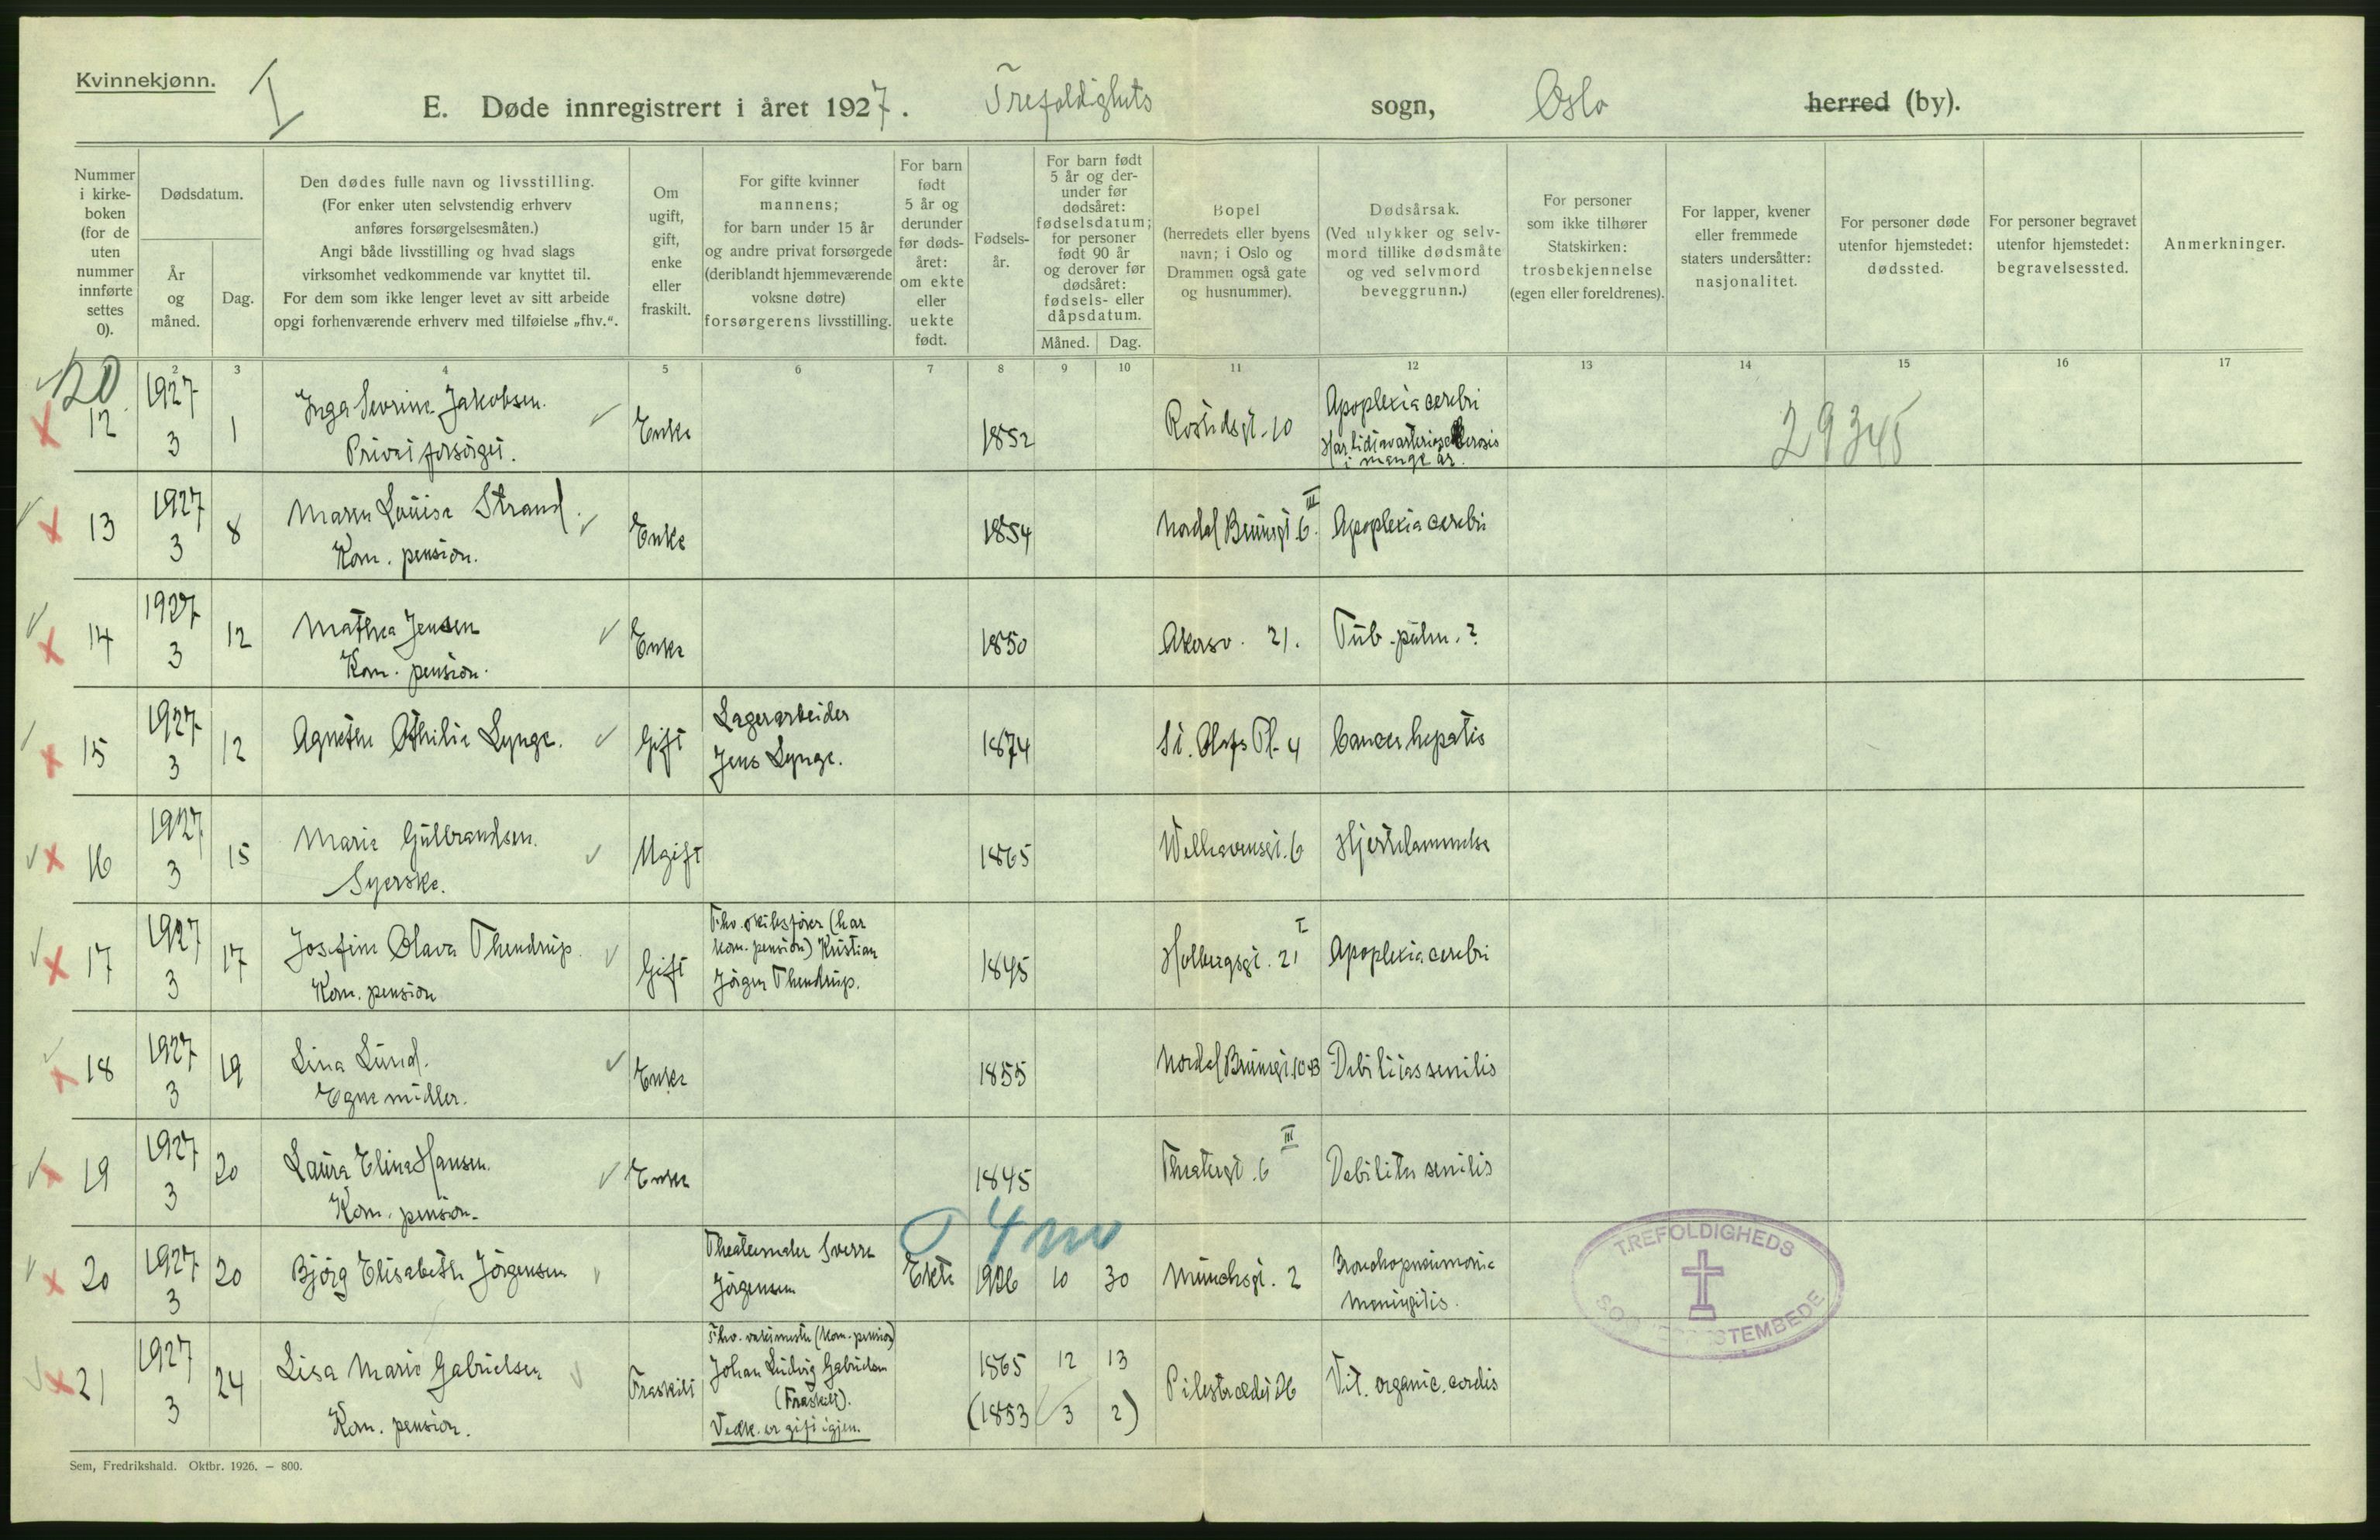 Kvinnekjønn.
I
E. Døde innregistrert i året 1927. Trefoldighets sogn, Oslo herred (by).
Nummer i kirke-boken (for de uten nummer innførte settes 0).
Dødsdatum.
År og måned.
Dag.
Den dødes fulle navn og livsstilling.
(For enker uten selvstendig erhverv
anføres forsørgelsesmåten.)
Angi både livsstilling og hvad slags
virksomhet vedkommende var knyttet til.
For dem som ikke lenger levet av sitt arbeide
opgi forhenværende erhverv med tilføielse „fhv.“.
Om ugift, gift, enke eller fraskilt.
For gifte kvinner
mannens;
for barn under 15 år
og andre privat forsørgede
(deriblandt hjemmeværende
voksne døtre)
forsørgerens livsstilling.
For barn født 5 år og derunder før døds-året: om ekte eller uekte født.
Fødsels-år.
For barn født
5 år og der-
under før
dødsåret:
fødselsdatum;
for personer
født 90 år
og derover før
dødsåret:
fødsels- eller
dåpsdatum.
Måned. Dag.
Bopel
(herredets eller byens
navn; i Oslo og
Drammen også gate
og husnummer).
Dødsårsak.
(Ved ulykker og selv-
mord tillike dødsmåte
og ved selvmord
beveggrunn.)
For personer
som ikke tilhører
Statskirken:
trosbekjennelse
(egen eller foreldrenes).
For lapper, kvener
eller fremmede
staters undersåtter:
nasjonalitet.
For personer døde
utenfor hjemstedet:
dødssted.
For personer begravet
utenfor hjemstedet:
begravelsessted.
Anmerkninger.
2 3 4 5 6 7 8 9 10 11 12 13 14 15 16 17
20
12 1927 3 1 Inga Sevrine Jakobsen. Enke 1852 10 Apoplexia cerebri
Privat forsørget. Har lidt av arteriosclerosis
i mange år.
29345
13 1927 3 8 Maren Louise Strand. Enke 1854 Nordal Brunsgt. 6 III Apoplexia cerebri
Kom. pension.
14 1927 3 12 Mathea Jensen Enke 1850 Akersv. 21. Tub. pulm. ?
Kom. pension.
15 1927 3 12 Agnethe Othilie Lynge. Gift Lagerarbeider
Jens Lynge. 1874 St. Olafs Pl. 4 Cancer hepatis
16 1927 3 15 Marie Gulbrandsen. Ugift 1865 Welhavensgt. 6 Hjertelammelse
Syerske.
17 1927 3 17 Josefine Olava Thendrup. Gift Fhv. skibsfører (har
kom. pension) Kristian
Jörgen Thendrup. 1845 Holbergsgt. 21 I Apoplexia cerebri
Kom. pension
18 1927 3 19 Lina Lund. Enke 1855 Nordal Brunsgt. 10 B Debilitas senilis
Egne midler.
19 1927 3 20 Laura Elina Hansen. Enke 1845 Theatergt. 6 III Debilitas senilis
Kom. pension.
4 m
20 1927 3 20 Bjørg Elisabeth Jörgensen Theatermaler Sverre
Jörgensen Ekte 1926 10 30 Munchsgt. 2 Bronchopneumonie
Meningitis.
21 1927 3 24 Lisa Marie Gabrielsen Fraskilt Fhv. vaktmester (kom. pension)
Johan Ludvig Gabrielsen
(Fraskilt).
Vedk. er gift igjen. 1865 12 13
(1853 3 2) Pilestrædet Vit. organic. cordis
Kom. pension.
TREFOLDIGHEDS
Sem, Fredrikshald. Oktbr. 1926. — 800.